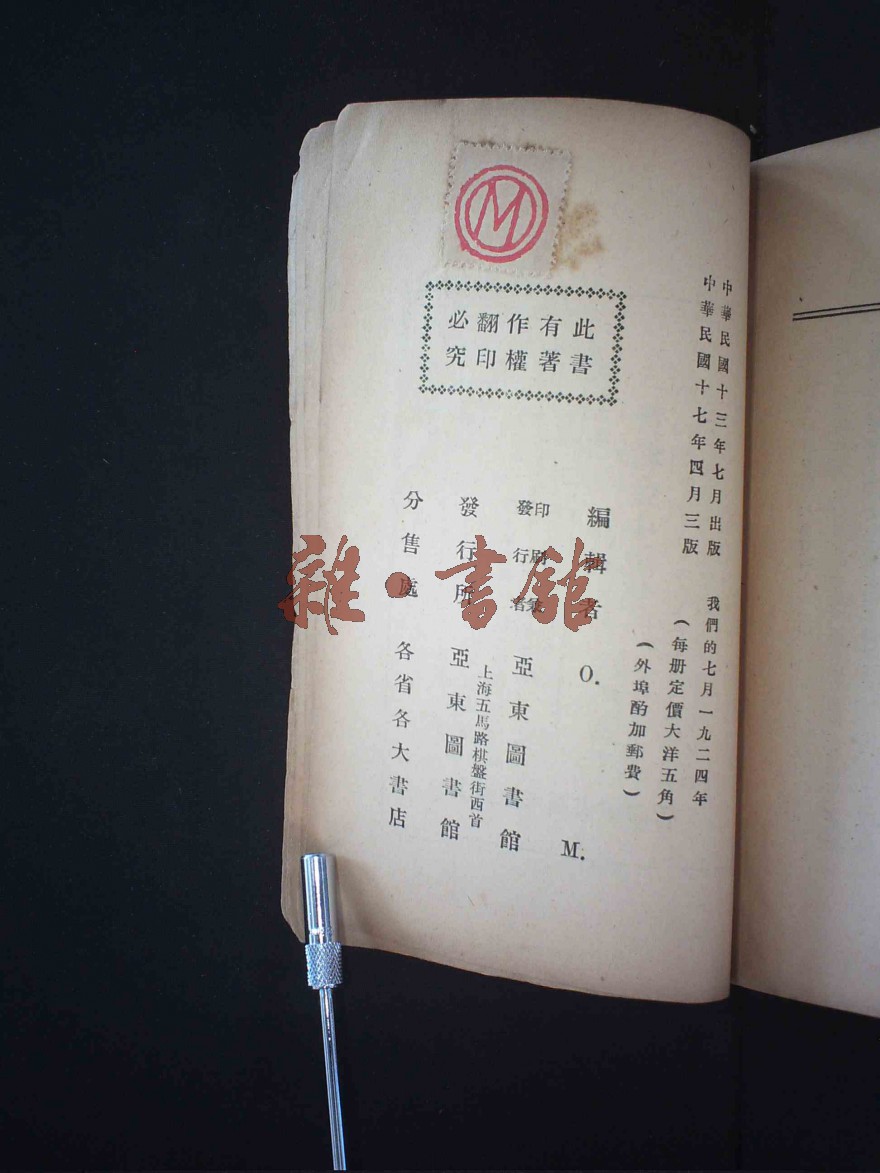 中華民國十三年七月出版
中華民國十七年四月三版
我們的七月一九二四年
(每册定價大洋五角)
(外埠酌加郵費)
編輯者 O. M.
印刷兼
發行者
亞東圖書館
上海五馬路棋盤街西首
發行所 亞東圖書館
分售處 各省各大書店
此書
有著
作權
翻印
必究
M
雜·書館